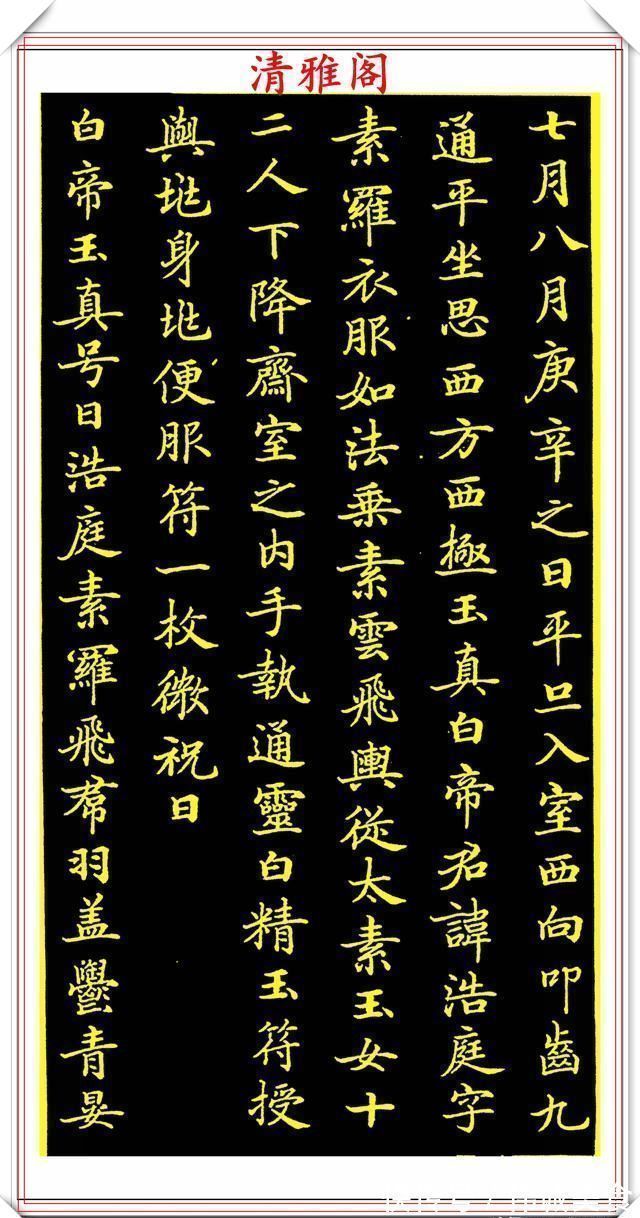 清雅阁
七月八月庚辛之日平旦入室西向叩齒九
通平坐思西方西極玉真白帝君諱浩庭字
素羅衣服如法乗素雲飛輿從太素玉女十
二人下降齋室之内手執通靈白精玉符授
與兆身兆便服符一枚微祝曰
白帝玉真号曰浩庭素羅飛帬羽盖鬱青